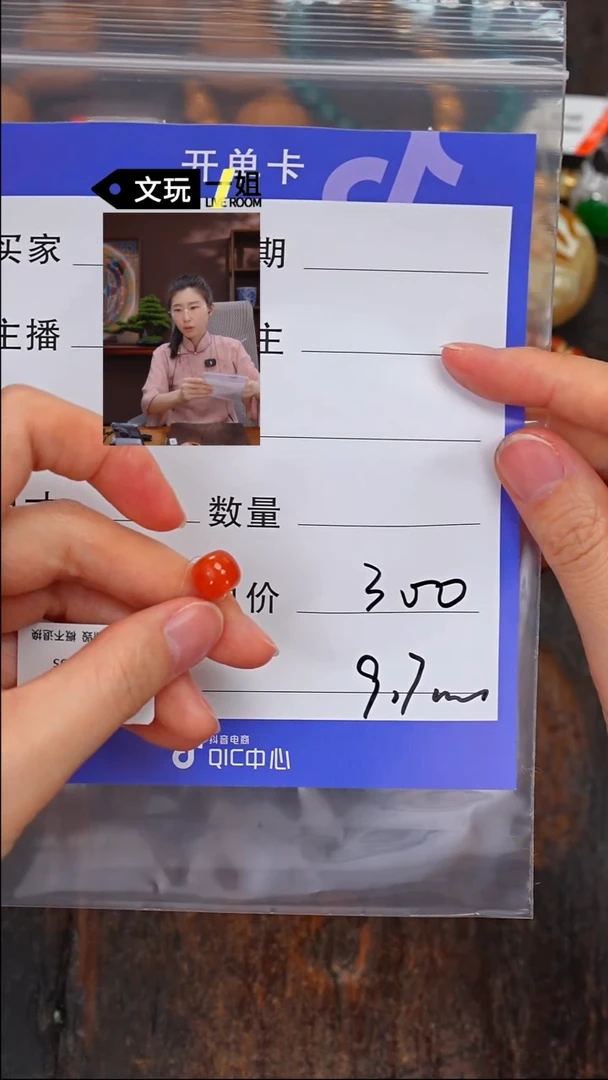 开单卡
文玩一姐
LIVE ROOM
买家
期
主播
主
数量
价 300
9.7mm
概不退换
抖音电商
QIC中心